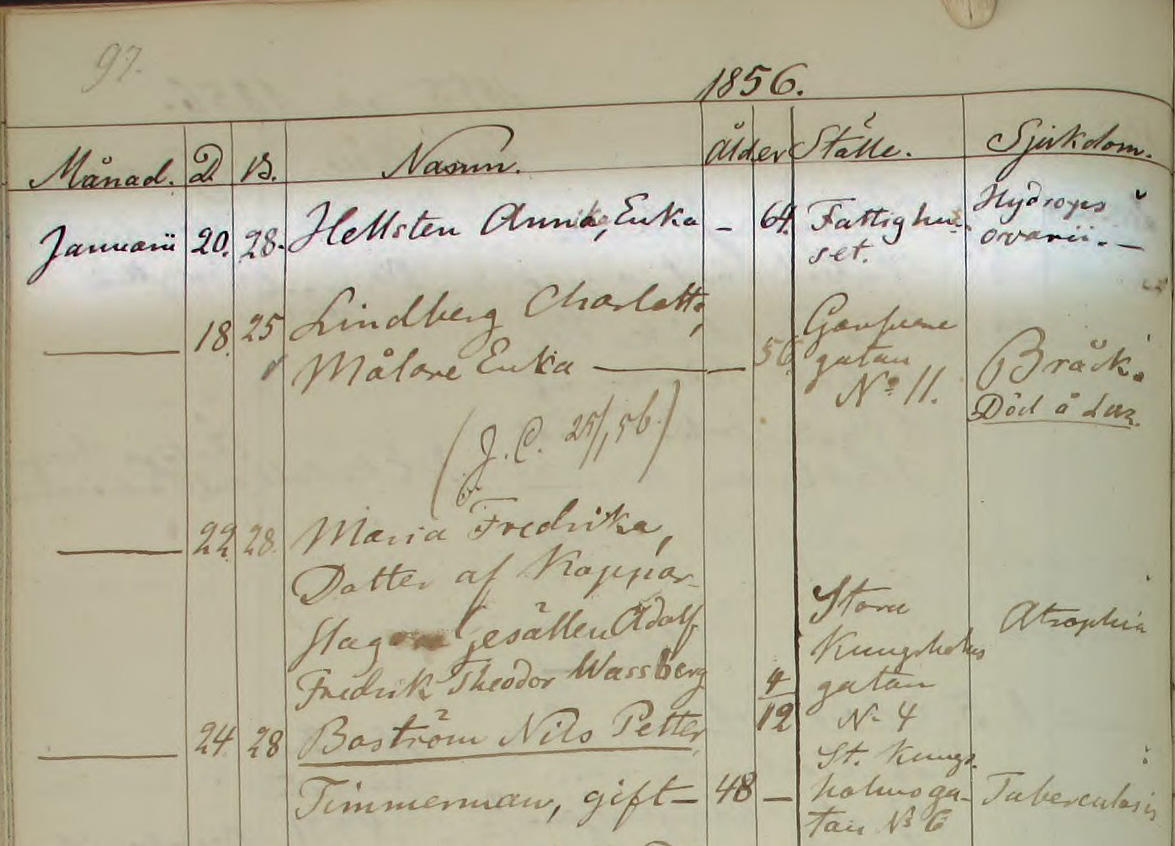 97.
1856.
Månad. D. B. Namn. Ålder Ställe. Sjukdom.
Januarii 20. 28. Hellsten Anna, Enka – 64. Fattighu- Hydrops
set. ovarii. –
18. 25 Lindberg Charlotta,
Målare Enka 56. gatan Bråck.
No 11. Död å Laz.
(J. C. 25/1 56.)
22. 28. Maria Fredrika,
Dotter af Koppar-
slag Gesällen Adolf Stora Atrophia
Fredrik Theodor Wassberg Kungsholms
4/12 gatan
No 4
24. 28 Boström Nils Petter, St. Kungs-
Timmerman, gift – 48 – holmsga- Tuberculosis
tan No 6